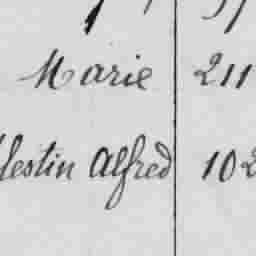 Marie 211
lestin Alfred 102